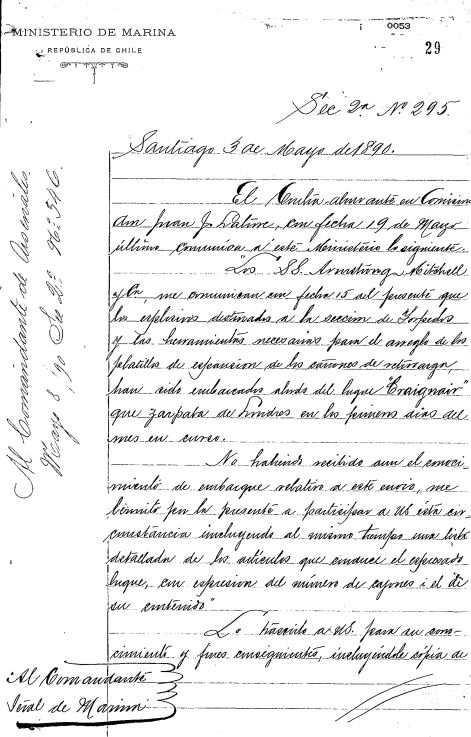 0053
29
MINISTERIO DE MARINA
REPÚBLICA DE CHILE
Sec 2ª Nº 295.
Santiago 3 de Mayo de 1890.
El almirante en Comision
Juan J. Latorre, con fecha 19 de Marzo
último comunica a este Ministerio lo siguiente:
"Los SS. Armstrong, Mitchell
y Ca, me comunican con fecha 15 del presente que
los esplosivos destinados a la seccion de Torpedos
y las herramientas necesarias para el arreglo de los
platillos de espansion de los cañones de retrocarga,
han sido embarcados abordo del buque "Craignair"
que zarpaba de Londres en los primeros dias del
mes en curso.
No habiendo recibido aun el conoci-
miento de embarque relativo a este envio, me
limito por la presente a participar a US esta cir-
cunstancia incluyendo al mismo tiempo una lista
detallada de los artículos que conduce el espresado
buque, con espresion del número de cajones i el de
su contenido"
Lo trascribo a US. para su cono-
cimiento y fines consiguientes, incluyéndole cópia de
Al Comandante
Jeneral de Marina
Al Comandante de Arsenales.
Mayo 8/90 Sec 2ª Nº 546.